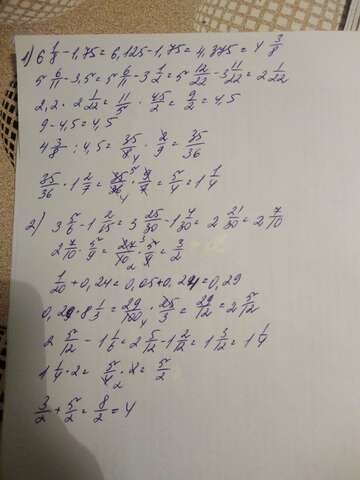 1) 6 1/8 - 1,75 = 6,125 - 1,75 = 4,375 = 4 3/8
5 6/11 - 3,5 = 5 6/11 - 3 1/2 = 5 12/22 - 3 11/22 = 2 1/22
2,2 · 2 1/22 = 11/5 · 45/22 = 9/2 = 4,5
9 - 4,5 = 4,5
4 3/8 : 4,5 = 35/8 4 · 2/9 = 35/36
35/36 · 1 2/7 = 35 5/36 4 · 9/7 = 5/4 = 1 1/4
2) 3 5/6 - 1 2/15 = 3 25/30 - 1 4/30 = 2 21/30 = 2 7/10
2 7/10 · 5/9 = 27 3/10 2 · 5/9 = 3/2
1/20 + 0,24 = 0,05 + 0,24 = 0,29
0,29 · 8 1/3 = 29/100 4 · 25/3 = 29/12 = 2 5/12
2 5/12 - 1 1/6 = 2 5/12 - 1 2/12 = 1 3/12 = 1 1/4
1 1/4 · 2 = 5/4 2 · 2 = 5/2
3/2 + 5/2 = 8/2 = 4